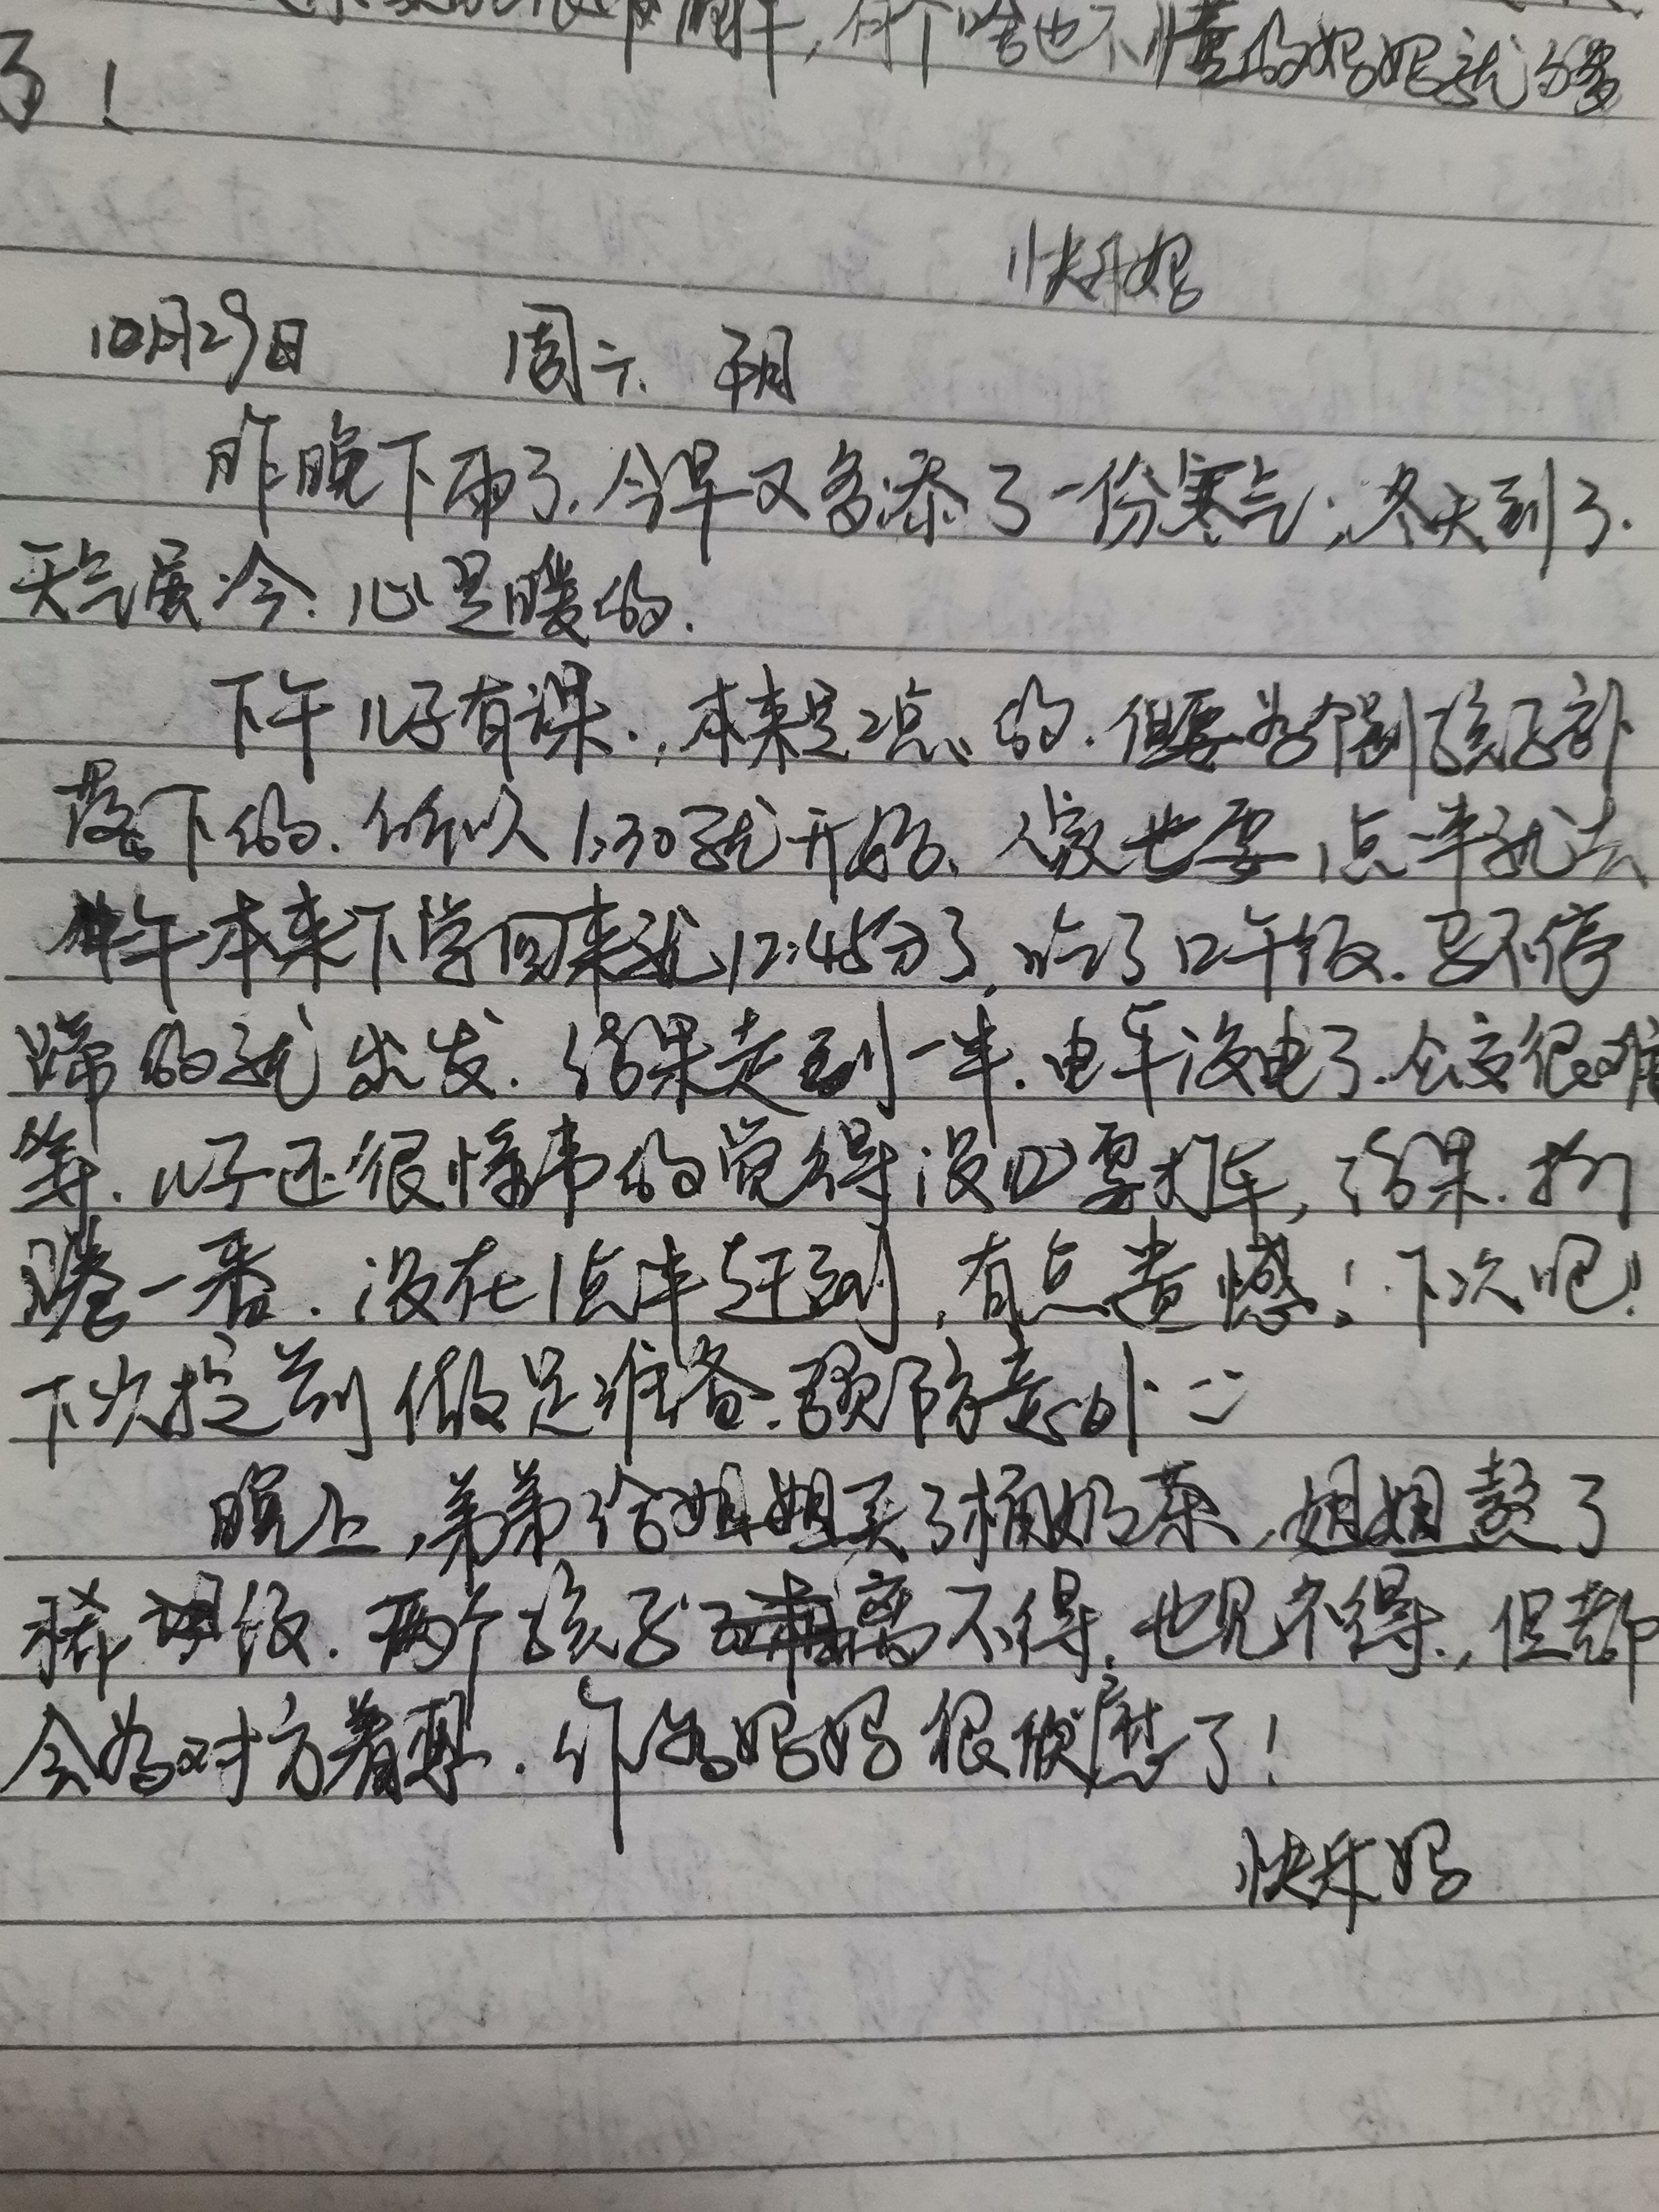 有个啥也不懂的妈妈就够
了!
快乐妈
10月29日 周六 阴
昨晚下雨了.今早又多添了一份寒气,冬天到了.
天气虽冷.心是暖的.
下午儿子有课.,本来是2点的.但要为个别孩子补
落下的.所以1:30就开始、人家也要1点半就去
中午本来下学回来就12:45分了,吃了口午饭.马不停
蹄的就出发.结果走到一半.电车没电了.公交很难
等.儿子还很懂事的觉得没必要打车,结果.折
腾一番.没在1点半赶到,有点遗憾!下次吧!
下次提前做足准备.预防意外
晚上,弟弟给姐姐买了桶奶茶,姐姐熬了
稀饭.两个孩子离不得.也见不得.,但都
会为对方着想.作为妈妈很欣慰了!
快乐妈